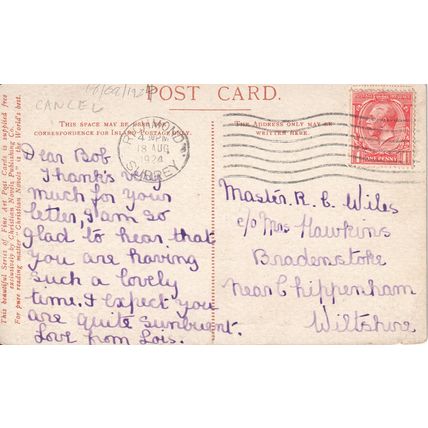 18/08/1924
CANCEL
POST CARD.
THIS SPACE MAY BE USED FOR
CORRESPONDENCE FOR INLAND POSTAGE ONLY.
THE ADDRESS ONLY MAY BE
WRITTEN HERE.
4 PM
18 AUG
1924
SURREY
ONE PENNY
This beautiful Series of Fine Art Post Cards is supplied free
exclusively by Christian Novels Publishing Co.
For pure reading matter "Christian Novels" is the World's best.
Dear Bob.
Thanks very
much for your
letter, I am so
glad to hear that
you are having
such a lovely
time. I expect you
are quite sunburnt.
Love from Lois.
Master. R. C. Wiles
c/o Mrs Hawkins
Bradenstoke
near Chippenham
Wiltshire